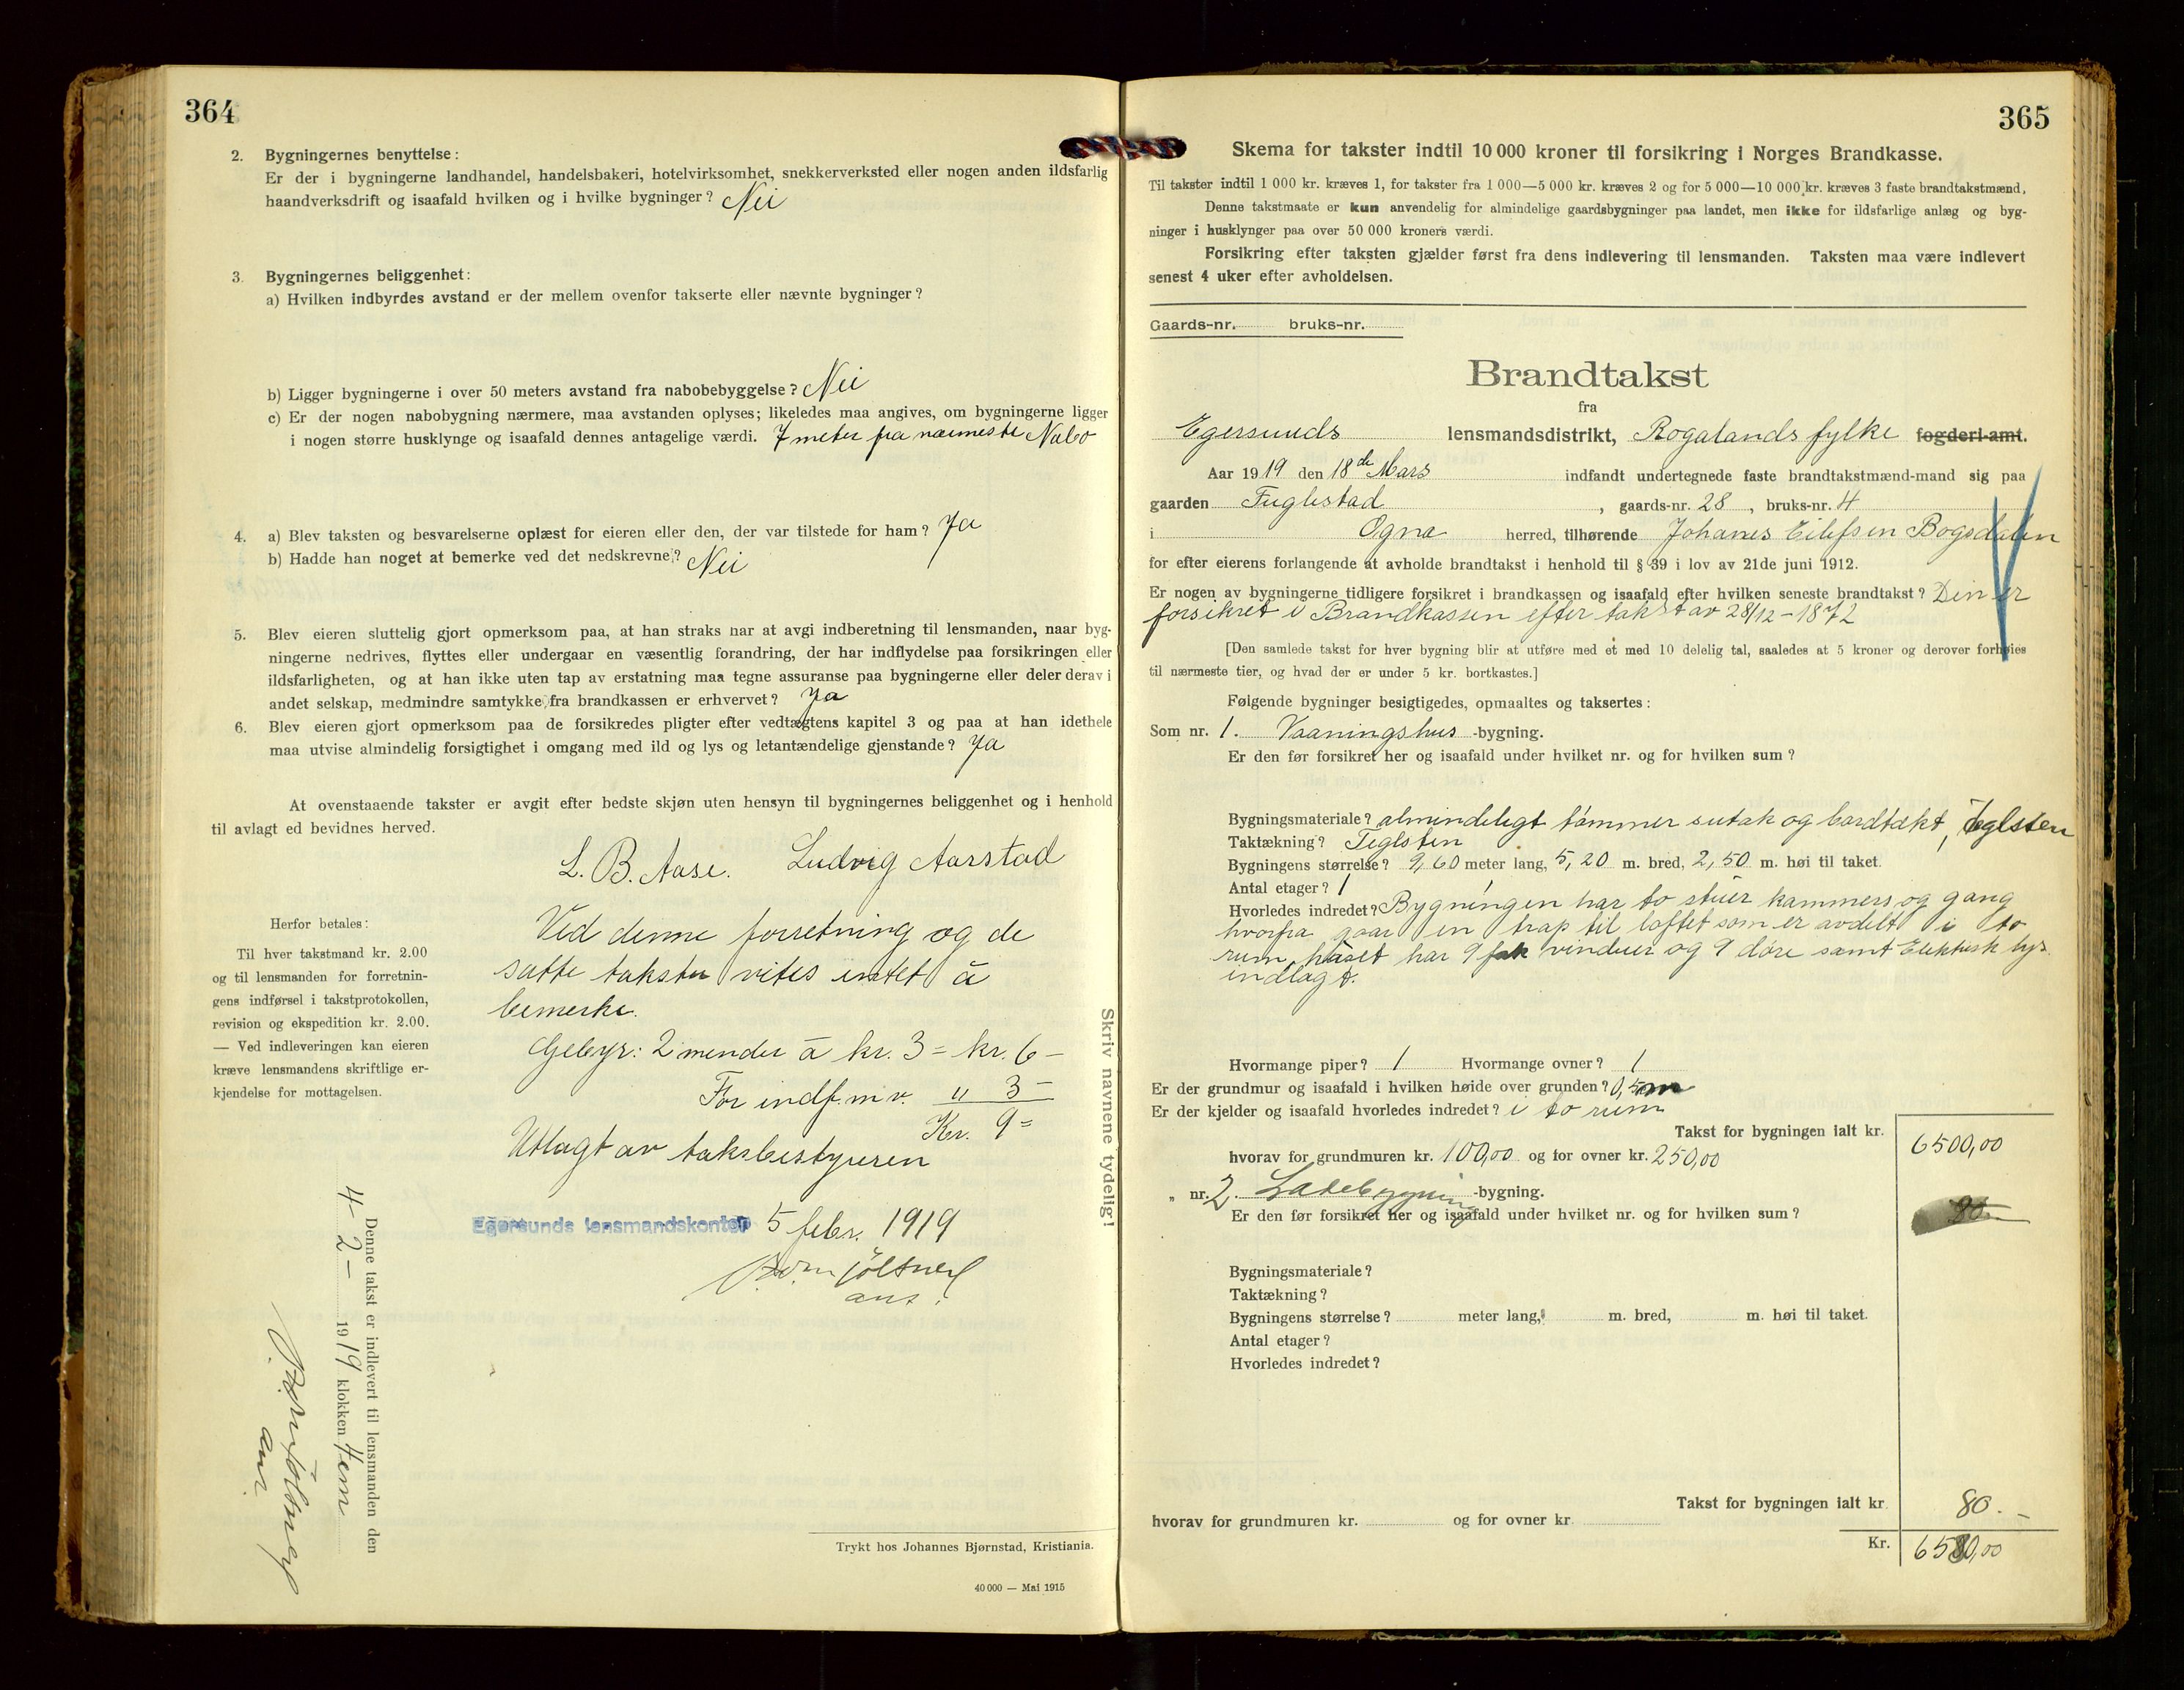 364
2. Bygningernes benyttelse:
Er der i bygningerne landhandel, handelsbakeri, hotelvirksomhet, snekkerverksted eller nogen anden ildsfarlig
haandverksdrift og isaafald hvilken og i hvilke bygninger? Nei
3. Bygningernes beliggenhet:
a) Hvilken indbyrdes avstand er der mellem ovenfor takserte eller nævnte bygninger?
b) Ligger bygningerne i over 50 meters avstand fra nabobebyggelse? Nei
c) Er der nogen nabobygning nærmere, maa avstanden oplyses; likeledes maa angives, om bygningerne ligger
i nogen større husklynge og isaafald dennes antagelige værdi. 7 meter fra nærmeste Nabo
4. a) Blev taksten og besvarelserne oplæst for eieren eller den, der var tilstede for ham? Ja
b) Hadde han noget at bemerke ved det nedskrevne? Nei
5. Blev eieren sluttelig gjort opmerksom paa, at han straks har at avgi indberetning til lensmanden, naar byg-
ningerne nedrives, flyttes eller undergaar en væsentlig forandring, der har indflydelse paa forsikringen eller
ildsfarligheten, og at han ikke uten tap av erstatning maa tegne assuranse paa bygningerne eller deler derav i
andet selskap, medmindre samtykke fra brandkassen er erhvervet? Ja
6. Blev eieren gjort opmerksom paa de forsikredes pligter efter vedtægtens kapitel 3 og paa at han idethele
maa utvise almindelig forsigtighet i omgang med ild og lys og letantændelige gjenstande? Ja
At ovenstaaende takster er avgit efter bedste skjøn uten hensyn til bygningernes beliggenhet og i henhold
til avlagt ed bevidnes herved.
L. B. Aase. Ludvig Aarstad
Herfor betales:
Til hver takstmand kr. 2.00
og til lensmanden for forretnin-
gens indførsel i takstprotokollen,
revision og ekspedition kr. 2.00.
— Ved indleveringen kan eieren
kræve lensmandens skriftlige er-
kjendelse for mottagelsen.
Ved denne forretning og de
satte takster vites intet å
bemerke.
Gebyr: 2 mender à kr. 3 = kr. 6 –
For indf. m.v. " 3 –
Kr. 9 =
Utlagt av taksbestyreren
Egersunds lensmandskontor 5 febr. 1919
ass.
Skriv navnene tydelig!
Denne takst er indlevert til lensmanden den
4 – 2 – 1919 klokken 4 em
Trykt hos Johannes Bjørnstad, Kristiania.
40 000 — Mai 1915
365
Skema for takster indtil 10 000 kroner til forsikring i Norges Brandkasse.
Til takster indtil 1 000 kr. kræves 1, for takster fra 1 000—5 000 kr. kræves 2 og for 5 000—10 000 kr. kræves 3 faste brandtakstmænd.
Denne takstmaate er kun anvendelig for almindelige gaardsbygninger paa landet, men ikke for ildsfarlige anlæg og byg-
ninger i husklynger paa over 50 000 kroners værdi.
Forsikring efter taksten gjælder først fra dens indlevering til lensmanden. Taksten maa være indlevert
senest 4 uker efter avholdelsen.
Gaards-nr. bruks-nr.
Brandtakst
fra
Egersunds lensmandsdistrikt, Rogalands fylke fogderi-amt.
Aar 1919 den 18de Mars indfandt undertegnede faste brandtakstmænd-mand sig paa
gaarden Fuglestad, gaards-nr. 28, bruks-nr. 4
i Ogna herred, tilhørende Johanes Eilefsen Bogsdalen
for efter eierens forlangende at avholde brandtakst i henhold til § 39 i lov av 21de juni 1912.
Er nogen av bygningerne tidligere forsikret i brandkassen og isaafald efter hvilken seneste brandtakst? Den er
forsikret i Brandkassen efter takst av 28/12 – 1872
[Den samlede takst for hver bygning blir at utføre med et med 10 delelig tal, saaledes at 5 kroner og derover forhøies
til nærmeste tier, og hvad der er under 5 kr. bortkastes.]
Følgende bygninger besigtigedes, opmaaltes og taksertes:
Som nr. 1. Vaaningshus -bygning.
Er den før forsikret her og isaafald under hvilket nr. og for hvilken sum?
Bygningsmateriale? almindeligt tømmer sutak og bordtækt, Teglsten
Taktækning? Teglsten
Bygningens størrelse? 9,60 meter lang, 5,20 m. bred, 2,50 m. høi til taket.
Antal etager? 1
Hvorledes indredet? Bygningen har to stuer kammers og gang
hvorfra gaar en trap til loftet som er avdelt i to
rum, huset har 9 fak vinduer og 9 døre samt Elektrisk lys
indlagt.
Hvormange piper? 1 Hvormange ovner? 1
Er der grundmur og isaafald i hvilken høide over grunden? 0,5 m
Er der kjelder og isaafald hvorledes indredet? i to rum
Takst for bygningen ialt kr. 6500,00
hvorav for grundmuren kr. 100,00 og for ovner kr. 250,00
„ nr. 2. Ladebygning -bygning.
Er den før forsikret her og isaafald under hvilket nr. og for hvilken sum?
Bygningsmateriale?
Taktækning?
Bygningens størrelse? meter lang, m. bred, m. høi til taket.
Antal etager?
Hvorledes indredet?
Takst for bygningen ialt kr. 80. –
hvorav for grundmuren kr. og for ovner kr.
Kr. 6580,00